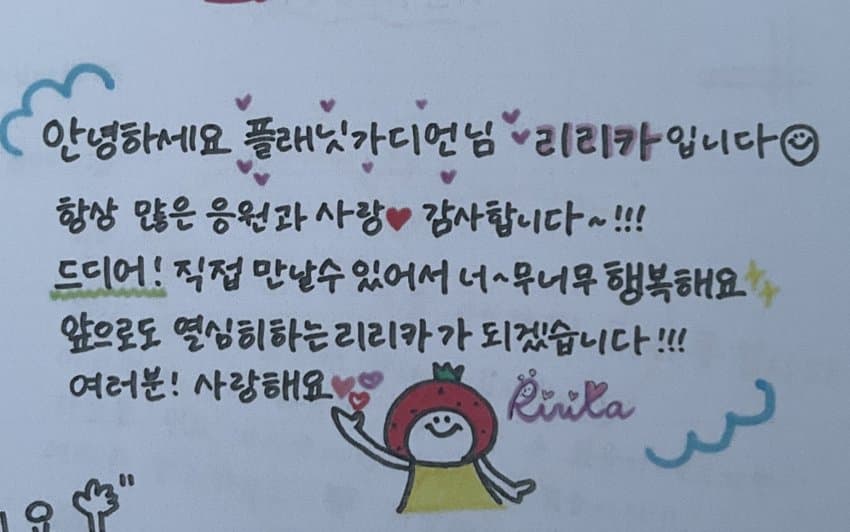 안녕하세요 플래닛가디언님 리리카입니다
항상 많은 응원과 사랑♥ 감사합니다~!!!
드디어! 직접 만날수 있어서 너~무너무 행복해요
앞으로도 열심히하는 리리카가 되겠습니다!!!
여러분! 사랑해요
Ririka
요 "